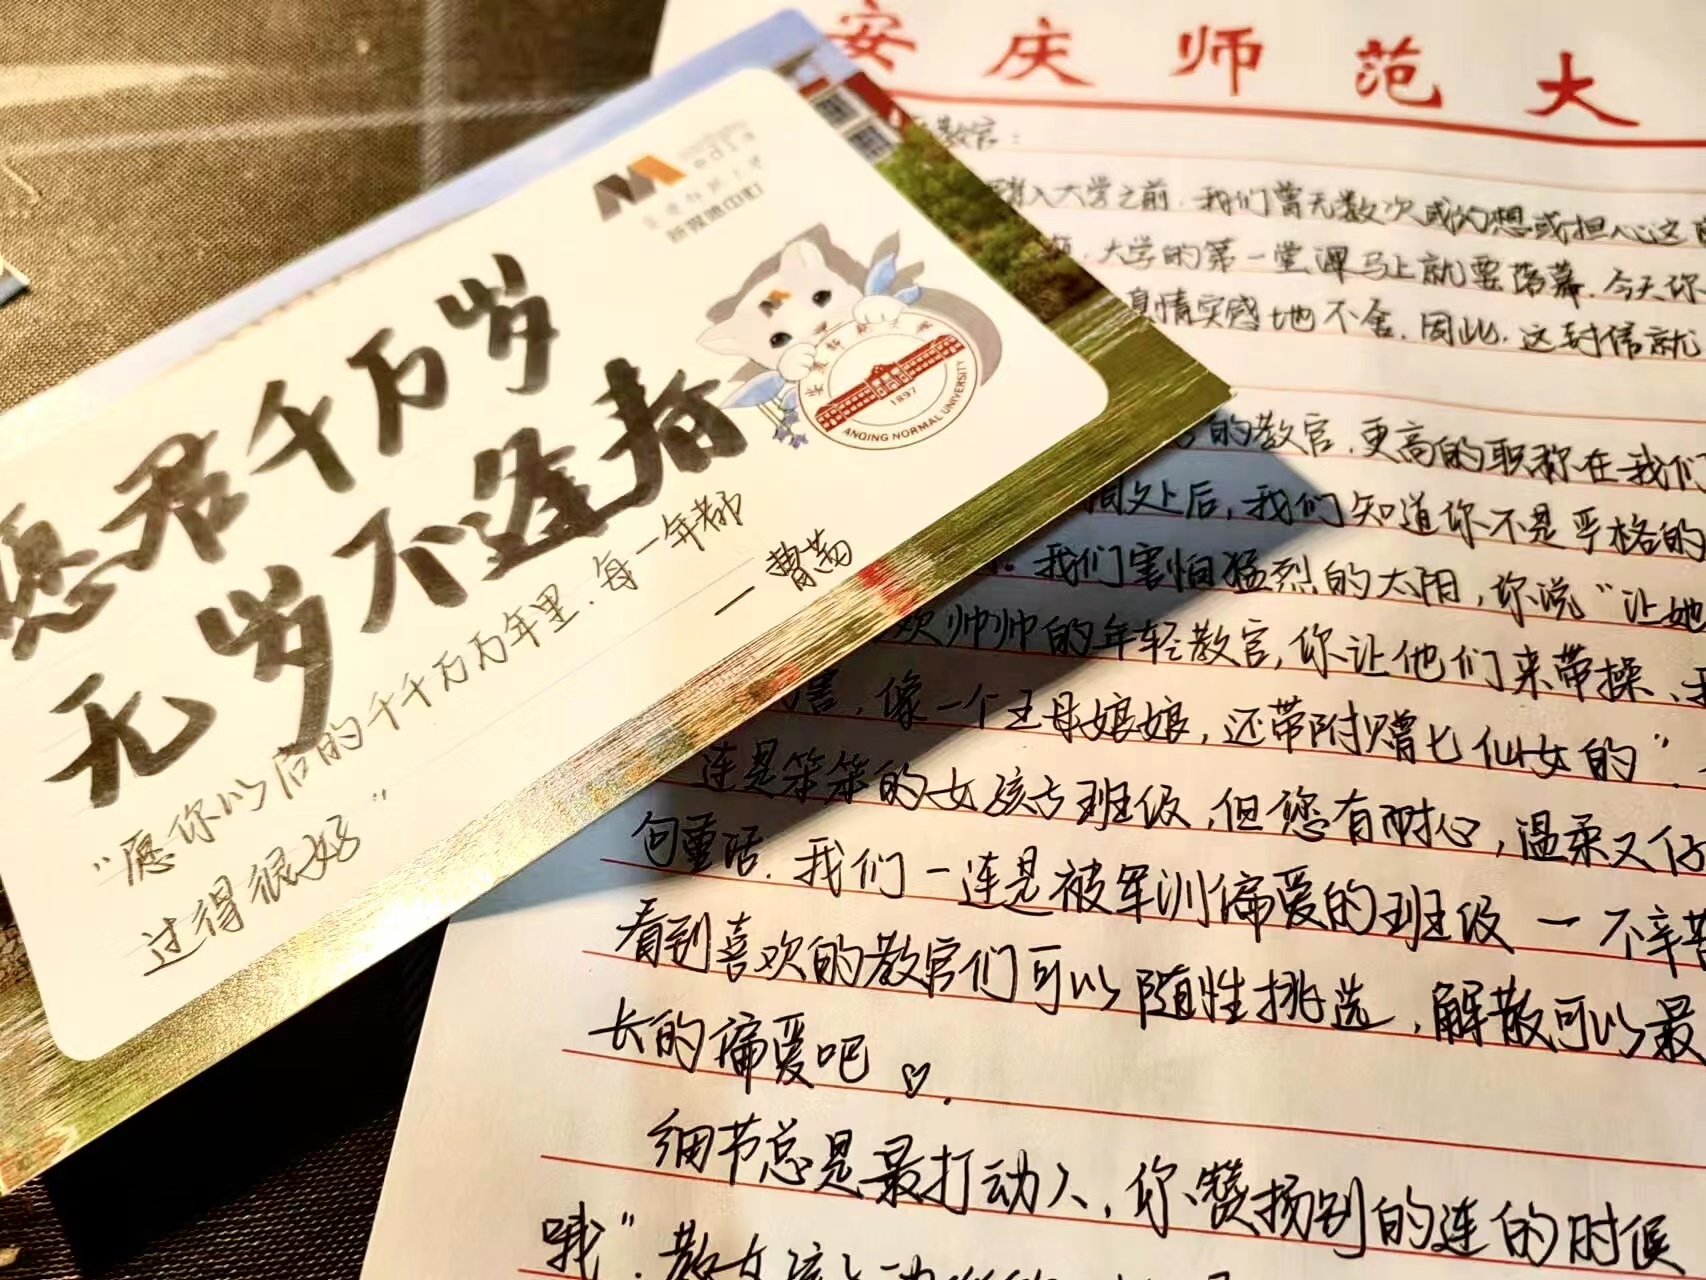 愿君千万岁
无岁不逢春
“愿你以后的千千万万年里,每一年都
过得很好”
—曹茜
安庆师范大学
新媒体中心
1897
ANQING NORMAL UNIVERSITY
安庆师范大
教官:
入大学之前,我们曾无数次或幻想或担心这
大学的第一堂课马上就要落幕,今天你
真情实感地不舍,因此,这封信就
的教官,更高的职称在我们
相处后,我们知道你不是严格的
我们害怕猛烈的太阳,你说“让她
欢帅帅的年轻教官,你让他们来带操、
害,像一个王母娘娘,还带附赠七仙女的”.
连是笨笨的女孩子班级,但您有耐心,温柔又
句重话.我们一连是被军训偏爱的班级一不辛苦
看到喜欢的教官们可以随性挑选,解散可以最
长的偏爱吧♡.
细节总是最打动人,你赞扬别的连的时候
哦”.